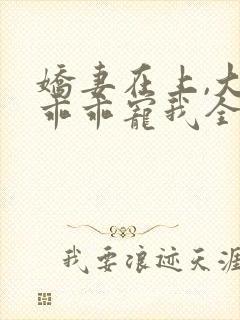 嬌妻在上,大
乖乖寵我全
我要浪迹天涯